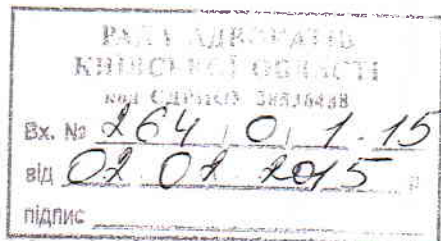 РАДА АДВОКАТІВ
КИЇВСЬКОЇ ОБЛАСТІ
код ЄДРПОУ
Вх. № 264 / 0 / 1-15
від 02.02.2015 р
підпис